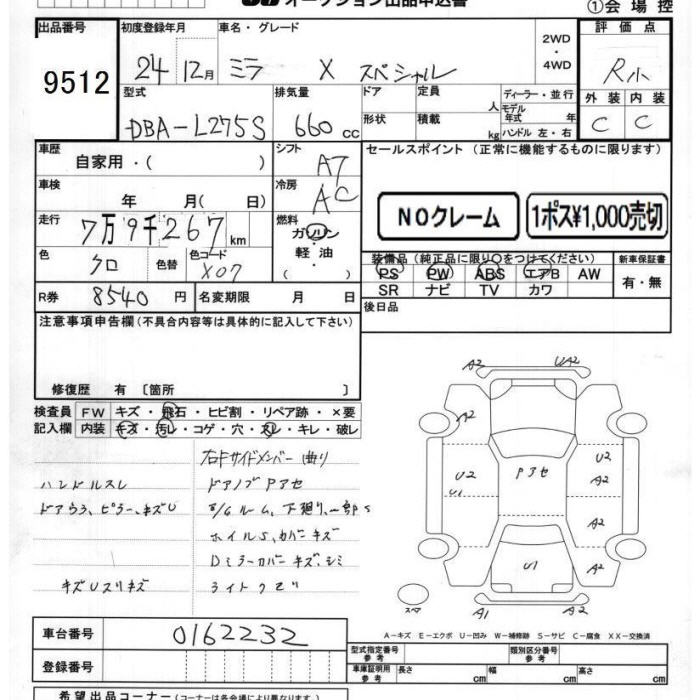 オークション出品申込書 ①会場控
出品番号 初度登録年月 車名・グレード 2WD・4WD 評価点
9512 24 12月 ミラ X スペシャル R小
型式 排気量 ドア 定員 人 ディーラー・並行 外装 内装
DBA-L275S 660 cc 形状 積載 kg モデル年式 年 ハンドル 左・右 C C
車歴 自家用・( ) シフト A7 セールスポイント (正常に機能するものに限ります)
車検 年 月( 日) 冷房 AC NOクレーム 1ポス¥1,000売切
走行 7万9千267 km 燃料 ガソリン・軽油・( )
色 クロ 色替 色コード X07 装備品(純正品に限り○をつけてください) 新車保証書
PS PW ABS エアB AW 有・無
SR ナビ TV カワ
R券 8540 円 名変期限 月 日 後日品
注意事項申告欄(不具合内容等は具体的に記入して下さい)
修復歴 有 〔箇所 〕
検査員 FW キズ・飛石・ヒビ割・リペア跡・×要
記入欄 内装 キズ・汚レ・コゲ・穴・スレ・キレ・破レ
右Fサイドメンバー曲り
ハンドルスレ ドアノブPアセ
ドアウラ、ピラー、キズU ルーム、下廻り、一部S
ホイルS、カバーキズ
Dミラーカバーキズ、シミ
キズUスリキズ ライトクモリ
A2 UA2
A2 A2
U2 Pアセ U2
U1 A2
A2
U1 A2
スペア A1 A2
A-キズ E-エクボ U-凹み W-補修跡 S-サビ C-腐食 XX-交換済
車台番号 0162232
型式指定番号 参考 類別区分番号 参考
登録番号 車庫証明用 参考 長さ cm 幅 cm 高さ cm
希望出品コーナー(コーナーは各会場により異なります)